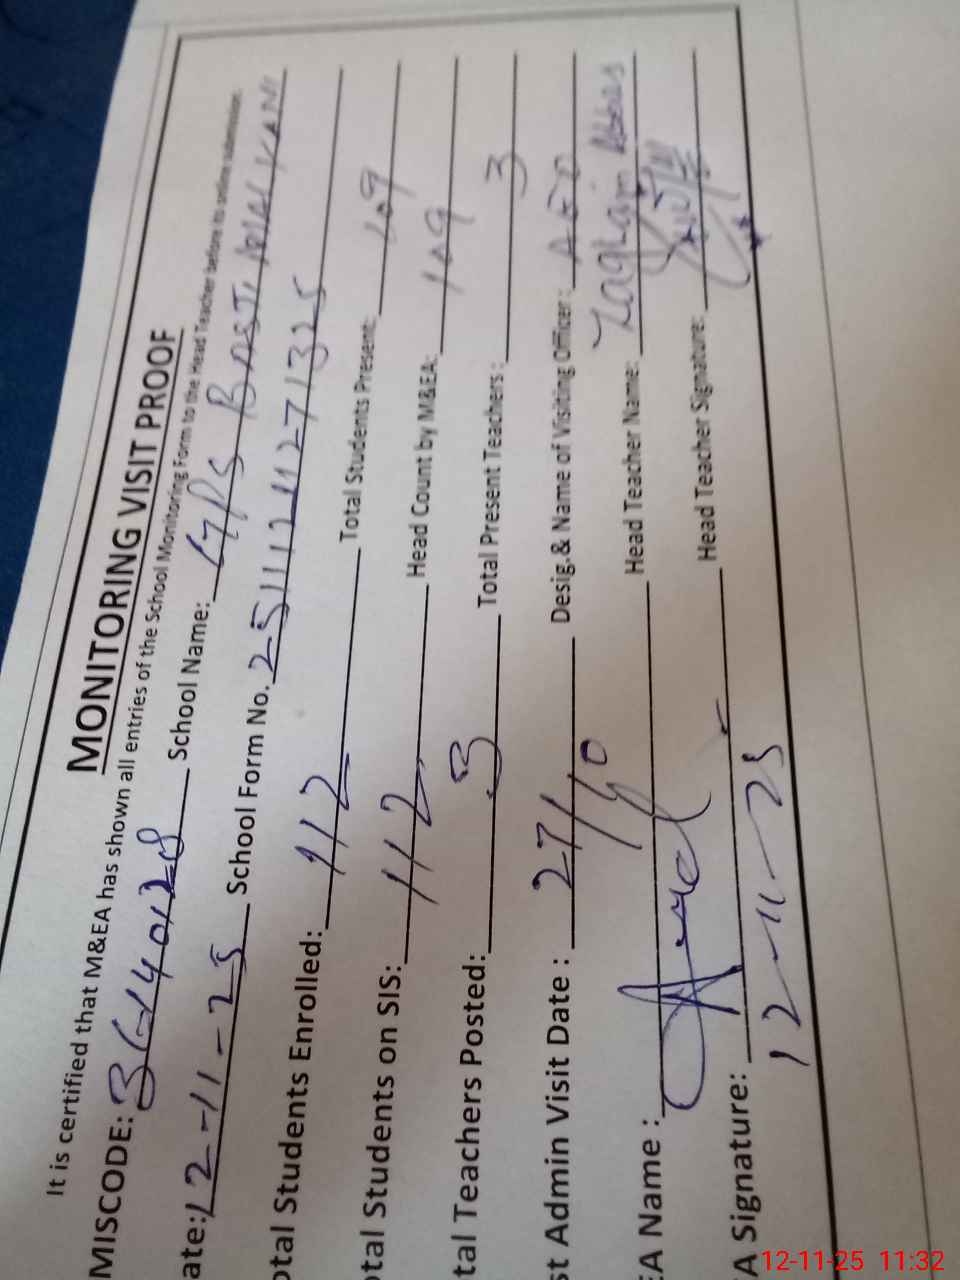 MONITORING VISIT PROOF
It is certified that M&EA has shown all entries of the School Monitoring Form to the Head Teacher before its online submission.
MISCODE: School Name: GPS BASTI
ate: 12-11-25 School Form No. 251112112711325
otal Students Enrolled: 112 Total Students Present: 109
otal Students on SIS: 112 Head Count by M&EA: 109
tal Teachers Posted: 3 Total Present Teachers: 3
st Admin Visit Date: 27/10 Desig.& Name of Visiting Officer: AEO
EA Name: Head Teacher Name: Zagham Abbas
A Signature: Head Teacher Signature:
12-11-25
12-11-25 11:32